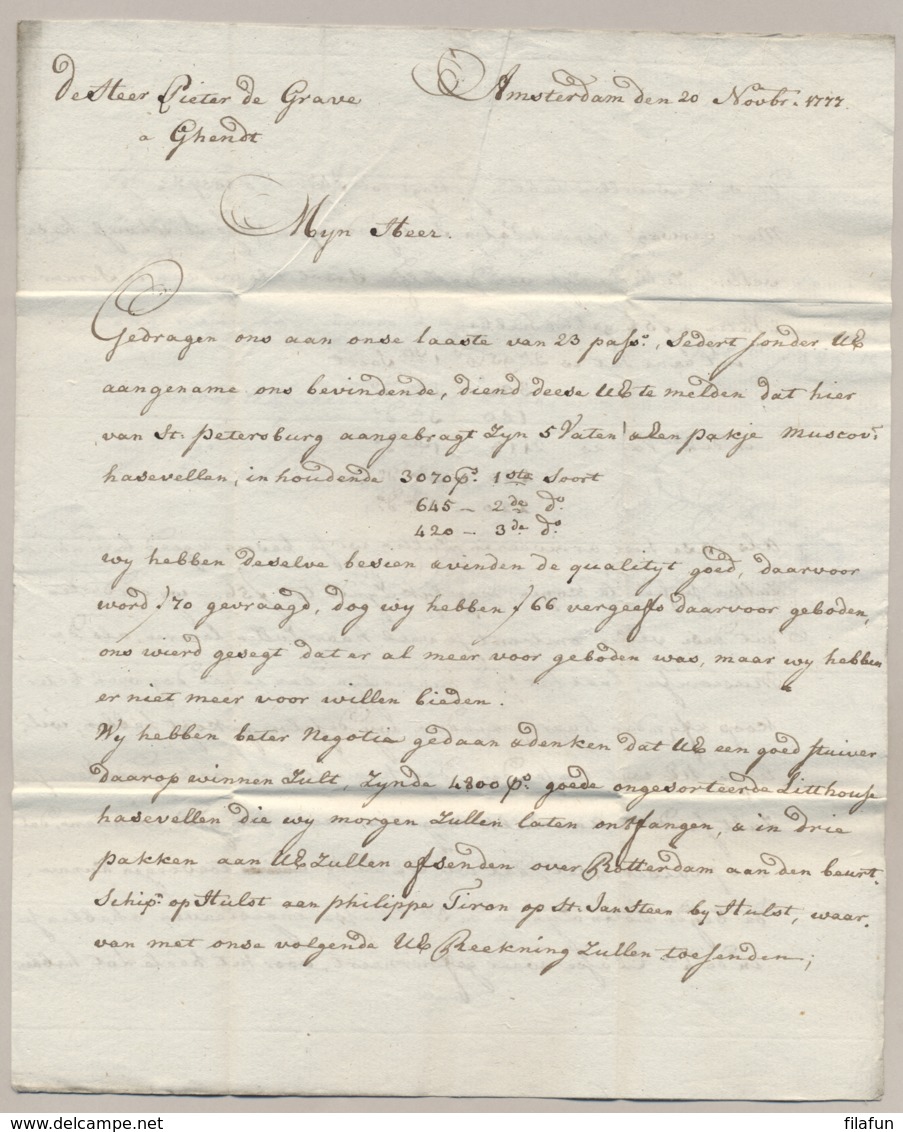 de Heer Pieter de Grave
a Ghendt
Amsterdam den 20 Novbr. 1777
Myn Heer.
Gedragen ons aan onse laaste van 23 passo., sedert sonder UE
aangename ons bevindende, diend deese UE te melden dat hier
van St. Petersburg aangebragt zyn 5 Vaten & Een pakje muscov.
hasevellen, inhoudende 3070 ps. 1ste Soort
645 — 2de do.
420 — 3de do.
wy hebben deselve besien & vinden de qualityt goed, daarvoor
word ƒ 70 gevraagd, dog wy hebben ƒ 66 vergeefs daarvoor geboden,
ons wierd gesegt dat er al meer voor geboden was, maar wy hebben
er niet meer voor willen bieden.
Wy hebben beter Negotie gedaan & denken dat UE een goed stuiver
daarop winnen zult, zynde 4800 ps. goede ongesorteerde Litthouse
hasevellen die wy morgen zullen laten ontfangen, & in drie
pakken aan UE zullen afsenden over Rotterdam aan den beurt
Schipr. op Hulst aen philippe Tiron op St. Jan Steen by Hulst, waar
van met onse volgende UE Reekning zullen toesenden;
filafun